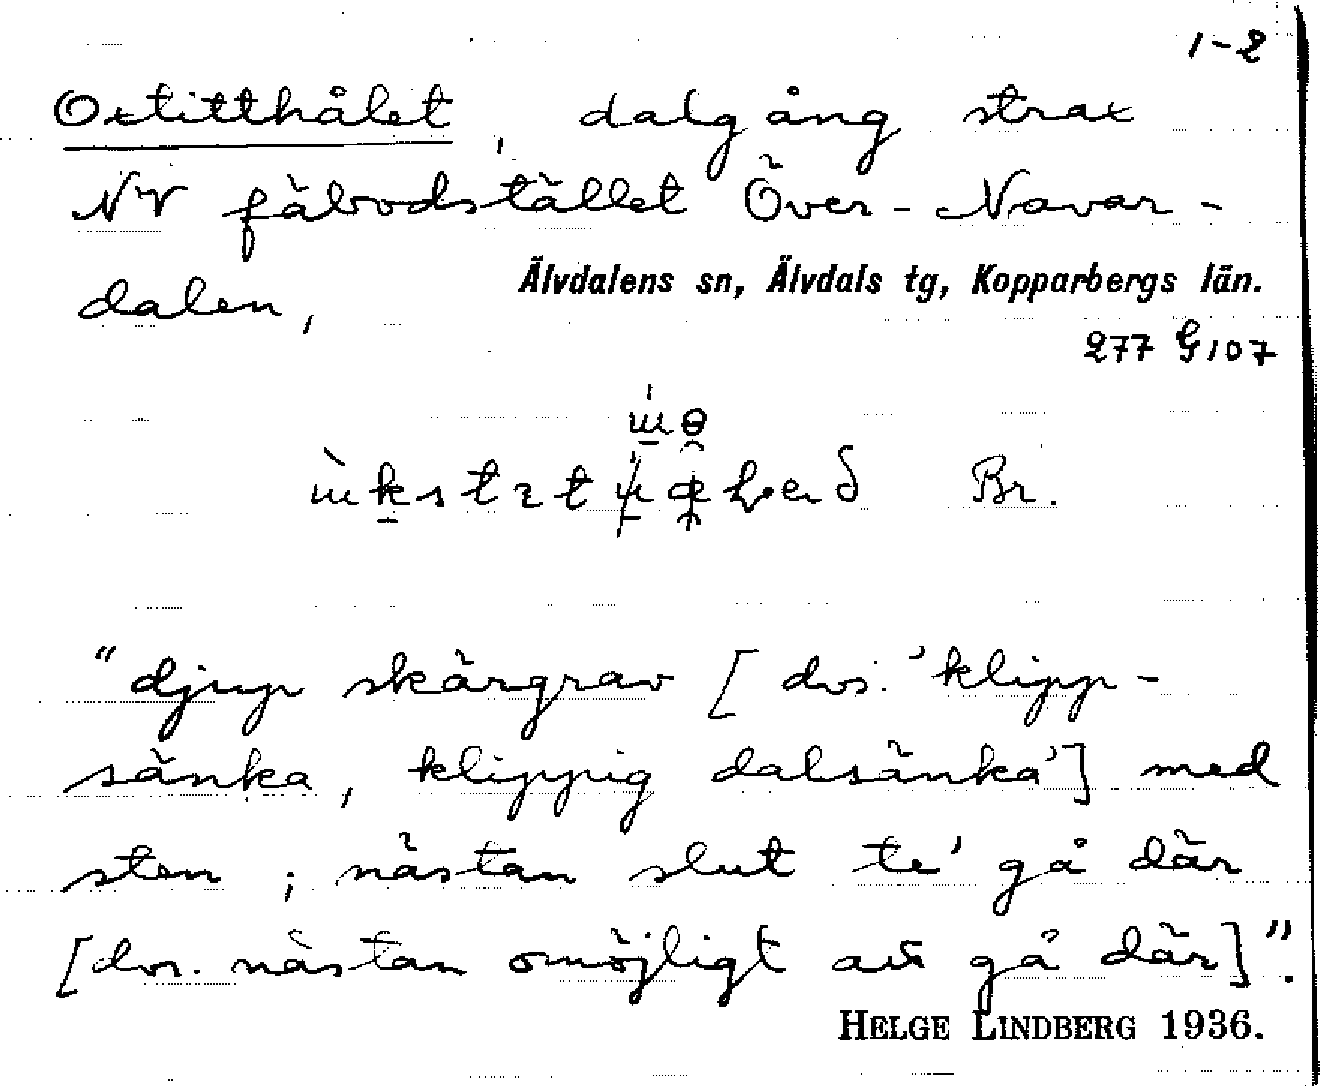 1-2
Oxtitthålet, dalgång strax
NV fäbodstället Över-Navar-
dalen,
Älvdalens sn, Älvdals tg, Kopparbergs län.
277 G107
Br.
"djup skärgrav [dvs. 'klipp-
sänka, klippig dalsänka'] med
sten; nästan slut te' gå där
[dvs. nästan omöjligt att gå där]".
HELGE LINDBERG 1936.